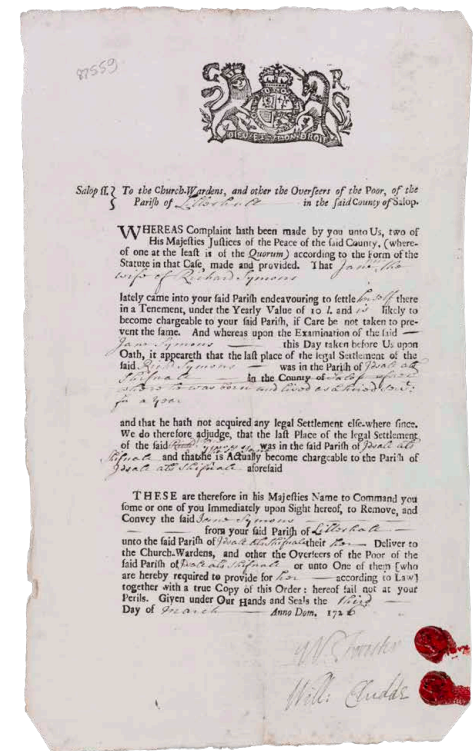 87559
G R
DIEU ET MON DROIT
Salop ſſ. } To the Church-Wardens, and other the Overſeers of the Poor, of the
Pariſh of Lilleshall in the ſaid County of Salop.
WHEREAS Complaint hath been made by you unto Us, two of
His Majeſties Juſtices of the Peace of the ſaid County, (where-
of one at the leaſt is of the Quorum) according to the Form of the
Statute in that Caſe, made and provided. That Jane the
wife of Richard Symons
lately came into your ſaid Pariſh endeavouring to ſettle there
in a Tenement, under the Yearly Value of 10 l. and is likely to
become chargeable to your ſaid Pariſh, if Care be not taken to pre-
vent the ſame. And whereas upon the Examination of the ſaid
Jane Symons this Day taken before Us upon
Oath, it appeareth that the laſt place of the legal Settlement of the
ſaid Richd Symons was in the Pariſh of
in the County of Salop
where he was born and lived as a hired
for a year
and that he hath not acquired any legal Settlement elſe-where ſince.
We do therefore adjudge, that the laſt Place of the legal Settlement,
of the ſaid was in the ſaid Pariſh of
and that he is Actually become chargeable to the Pariſh of
aforeſaid
THESE are therefore in his Majeſties Name to Command you
ſome or one of you Immediately upon Sight hereof, to Remove, and
Convey the ſaid Jane Symons
from your ſaid Pariſh of Lilleshall
unto the ſaid Pariſh of their her Deliver to
the Church-Wardens, and other the Overſeers of the Poor of the
ſaid Pariſh of or unto One of them [who
are hereby required to provide for her according to Law]
together with a true Copy of this Order: hereof fail not at your
Perils. Given under Our Hands and Seals the third
Day of March Anno Dom. 1726
Will: